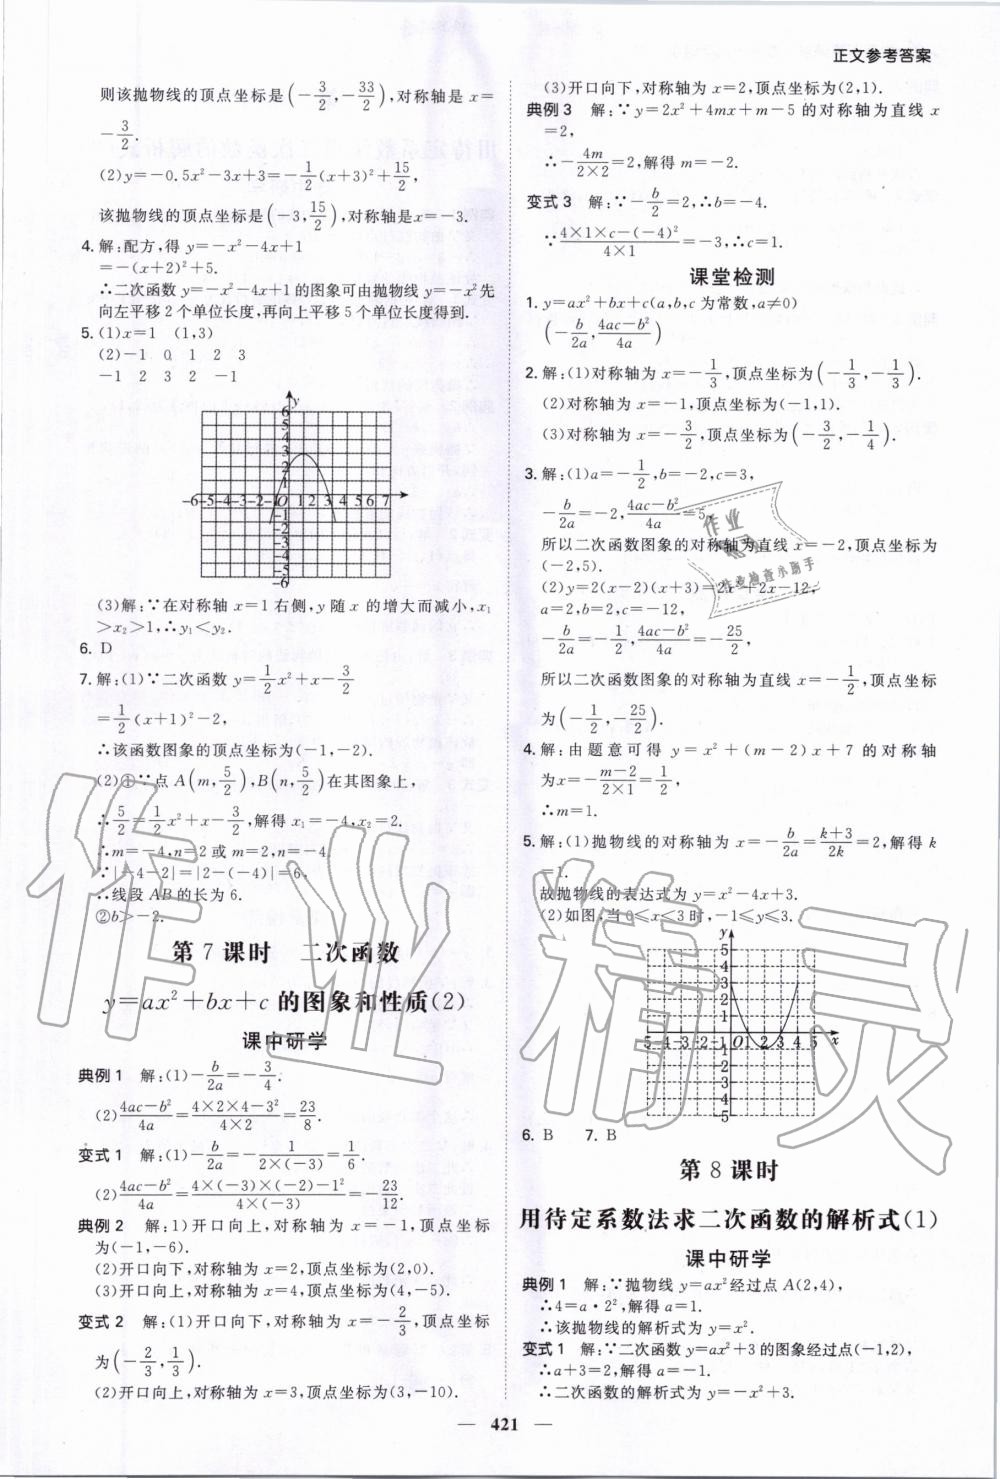 正文参考答案
则该抛物线的顶点坐标是(-3/2,-33/2),对称轴是 x=
-3/2.
(2)y=-0.5x²-3x+3=-1/2(x+3)²+15/2,
该抛物线的顶点坐标是(-3,15/2),对称轴是x=-3.
4. 解:配方,得 y=-x²-4x+1
=-(x+2)²+5.
∴二次函数 y=-x²-4x+1的图象可由抛物线 y=-x²先
向左平移2个单位长度,再向上平移5个单位长度得到.
5. (1)x=1 (1,3)
(2)-1 0 1 2 3
-1 2 3 2 -1
y
6
5
4
3
2
1
-6-5-4-3-2-1O 1 2 3 4 5 6 7 x
-1
-2
-3
-4
-5
-6
(3)解:∵在对称轴 x=1右侧,y 随 x 的增大而减小,x₁
>x₂>1,∴y₁<y₂.
6. D
7. 解:(1)∵二次函数 y=1/2x²+x-3/2
=1/2(x+1)²-2,
∴该函数图象的顶点坐标为(-1,-2).
(2)①∵点 A(m,5/2),B(n,5/2)在其图象上,
∴5/2=1/2x²+x-3/2,解得 x₁=-4,x₂=2.
∴m=-4,n=2或 m=2,n=-4.
∵|-4-2|=|2-(-4)|=6,
∴线段 AB 的长为 6.
②b>-2.
第 7 课时 二次函数
y=ax²+bx+c 的图象和性质(2)
课中研学
典例 1 解:(1)-b/2a=-3/4.
(2)4ac-b²/4a=4×2×4-3²/4×2=23/8.
变式 1 解:(1)-b/2a=-1/2×(-3)=1/6.
(2)4ac-b²/4a=4×(-3)×(-2)-1²/4×(-3)=-23/12.
典例 2 解:1)开口向上,对称轴为 x=-1,顶点坐标
为(-1,-6).
(2)开口向下,对称轴为 x=2,顶点坐标为(2,0).
(3)开口向上,对称轴为 x=4,顶点坐标为(4,-5).
变式 2 解:(1)开口向下,对称轴为 x=-2/3,顶点坐标
为(-2/3,1/3).
(2)开口向上,对称轴为 x=3,顶点坐标为(3,-10).
(3)开口向下,对称轴为 x=2,顶点坐标为(2,1).
典例 3 解:∵y=2x²+4mx+m-5 的对称轴为直线 x
=2,
∴-4m/2×2=2,解得 m=-2.
变式 3 解:∵-b/2=2,∴b=-4.
∵4×1×c-(-4)²/4×1=-3,∴c=1.
课堂检测
1. y=ax²+bx+c(a,b,c 为常数,a≠0)
(-b/2a,4ac-b²/4a)
2. 解:(1)对称轴为 x=-1/3,顶点坐标为(-1/3,-1/3).
(2)对称轴为 x=-1,顶点坐标为(-1,1).
(3)对称轴为 x=-3/2,顶点坐标为(-3/2,-1/4).
3. 解:(1)a=-1/2,b=-2,c=3,
-b/2a=-2,4ac-b²/4a=5,
所以二次函数图象的对称轴为直线 x=-2,顶点坐标为
(-2,5).
(2)y=2(x-2)(x+3)=2x²+2x-12,
a=2,b=2,c=-12,
-b/2a=-1/2,4ac-b²/4a=-25/2,
所以二次函数图象的对称轴为直线 x=-1/2,顶点坐标
为(-1/2,-25/2).
4. 解:由题意可得 y=x²+(m-2)x+7 的对称轴
为x=-m-2/2×1=1/2,
∴m=1.
5. 解:(1)抛物线的对称轴为 x=-b/2a=k+3/2k=2,解得 k
=1.
故抛物线的表达式为 y=x²-4x+3.
(2)如图,当 0≤x≤3时,-1≤y≤3.
y
5
4
3
2
1
-5-4-3-2-1O 1 2 3 4 5 x
-1
-2
-3
-4
-5
6. B 7. B
第 8 课时
用待定系数法求二次函数的解析式(1)
课中研学
典例 1 解:∵抛物线 y=ax²经过点 A(2,4),
∴4=a·2²,解得 a=1.
∴该抛物线的解析式为 y=x².
变式 1 解:∵二次函数 y=ax²+3的图象经过点(-1,2),
∴a+3=2,解得 a=-1.
∴二次函数的解析式为 y=-x²+3.
— 421 —
作业精灵
作业
作业检查小助手